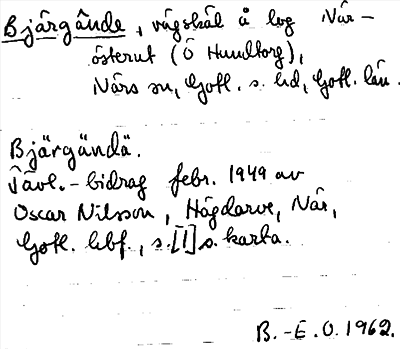 Bjärgände, vägskäl å väg När –
österut (Ö Hundtorg),
Närs sn, Gotl. s. hd, Gotl. län.
Bjärgändä.
Tävl.-bidrag febr. 1949 av
Oscar Nilsson, Hägdarve, När,
Gotl. hbf., s. [1] s. karta.
B.-E. O. 1962.